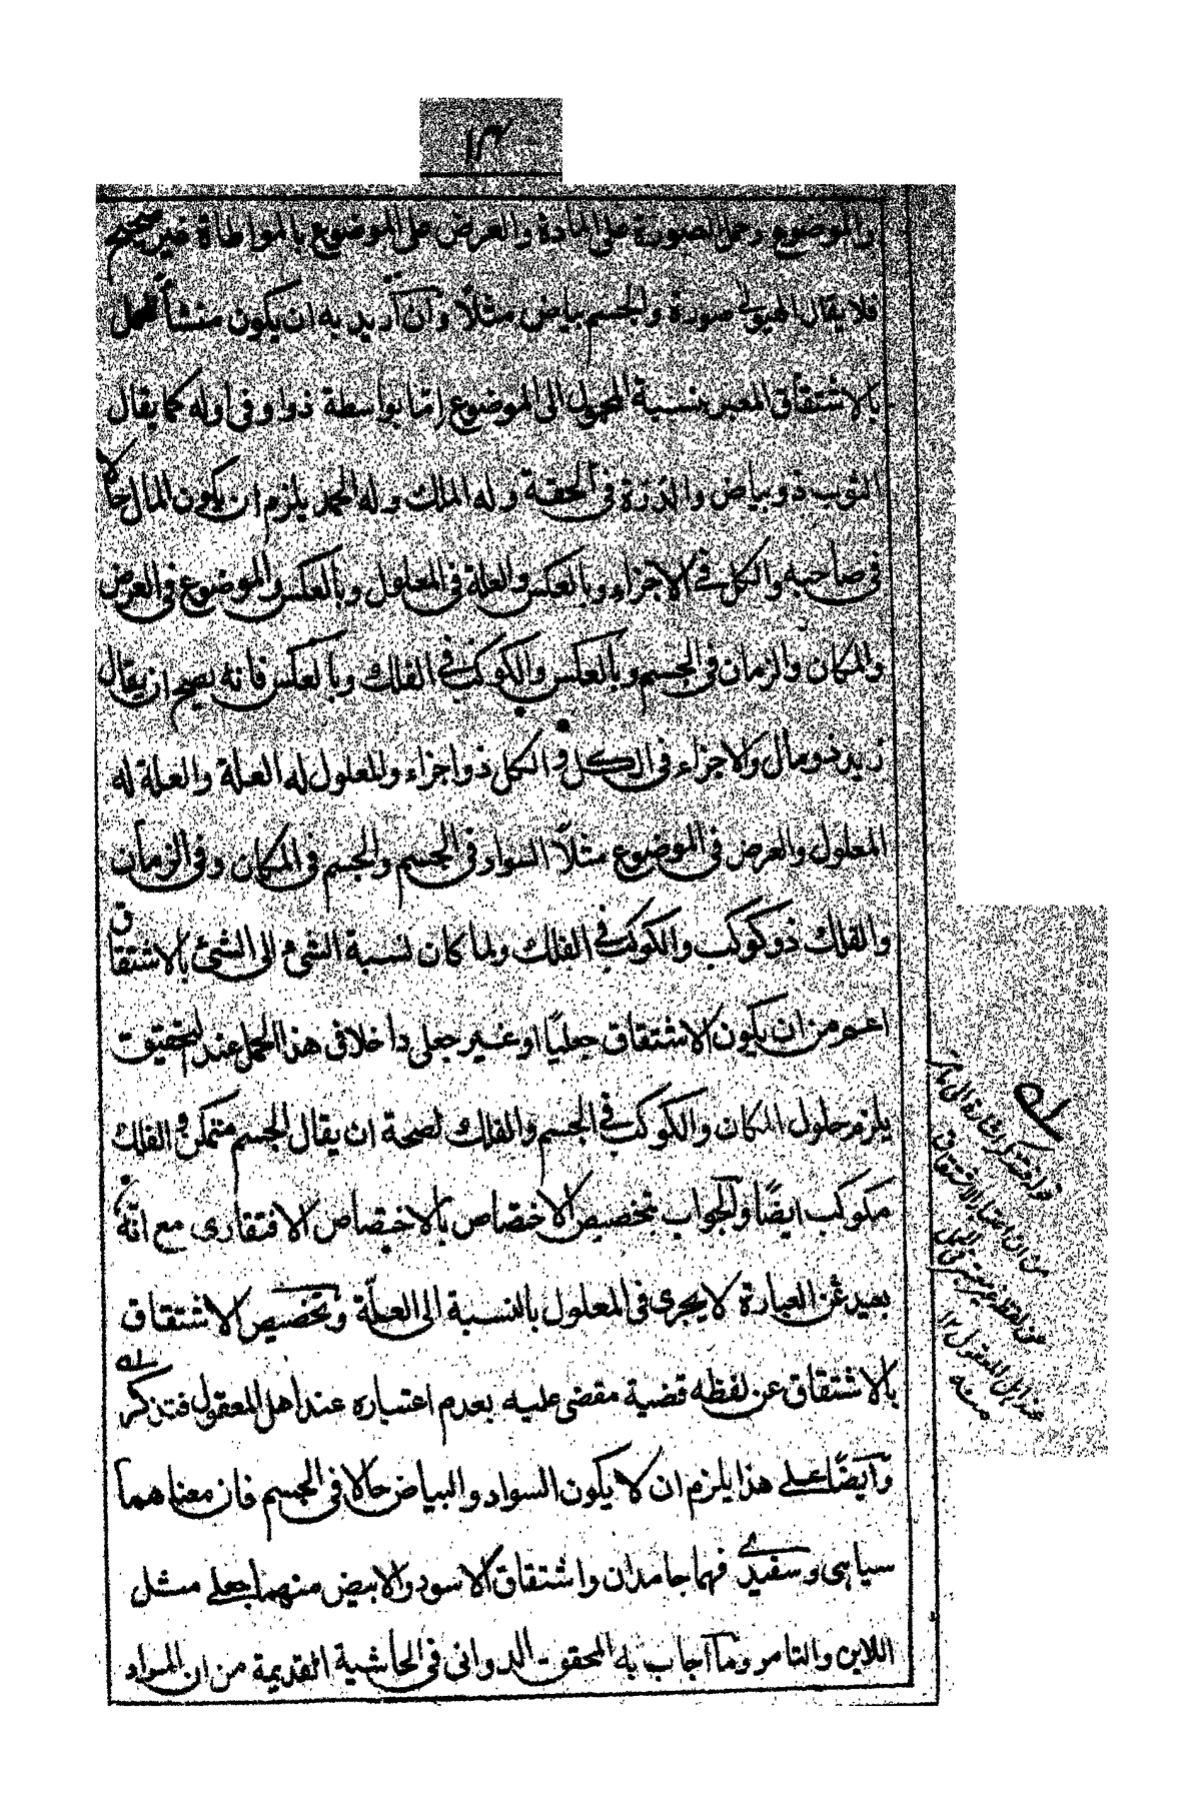 ۱۳
والموضوع وحمل الصورة على المادة والعرض على الموضوع بالمواطاة غير صحيح
فلا يقال الهيولى صورة والجسم بياض مثلًا وان أريد به ان يكون منشأ لحمل
بالاشتقاق المعبر بنسبة المحمول الى الموضوع إمّا بواسطة ذو او فى او له كما يقال
الثوب ذو بياض والذرّة فى الحقة وله الملك وله الحمد يلزم ان يكون المال حالًا
فى صاحبه والكل فى الاجزاء وبالعكس والعلة فى المعلول وبالعكس والموضوع فى العرض
والمكان والزمان فى الجسم وبالعكس والكوكب فى الفلك وبالعكس فانه يصح ان يقال
زيد ذو مال والاجزاء فى الكل والكل ذو اجزاء والمعلول له العلة والعلة له
المعلول والعرض فى الموضوع مثلًا السواد فى الجسم والجسم فى المكان وفى الزمان
والفلك ذو كوكب والكوكب فى الفلك ولما كان نسبة الشئ الى الشئ بالاشتقاق
اعم من ان يكون الاشتقاق جعليًا او غير جعلى داخلا فى هذا الحمل عند التحقيق
يلزم حلول المكان والكوكب فى الجسم والفلك لصحة ان يقال الجسم متمكن والفلك
مكوكب ايضًا والجواب بتخصيص الاختصاص بالاختصاص الافتقارى مع انّه
بعيد عن العبارة لا يجرى فى المعلول بالنسبة الى العلّة وتخصيص الاشتقاق
بالاشتقاق عن لفظه قضية مقضى عليه بعدم اعتباره عند اهل المعقول فتذكر
وأيضًا على هذا يلزم ان لا يكون السواد والبياض حالا فى الجسم فان معناهما
سياهى وسفيدى فهما جامدان واشتقاق الاسود والابيض منهما جعلى مثل
اللابن والتامر وما أجاب به المحقق الدوانى فى الحاشية القديمة من ان المراد
قوله فتذكر اشارة الى ما مر
من ان اعتبار الاشتقاق
عن لفظه غير معتبر
عند اهل المعقول ۱۲
منه